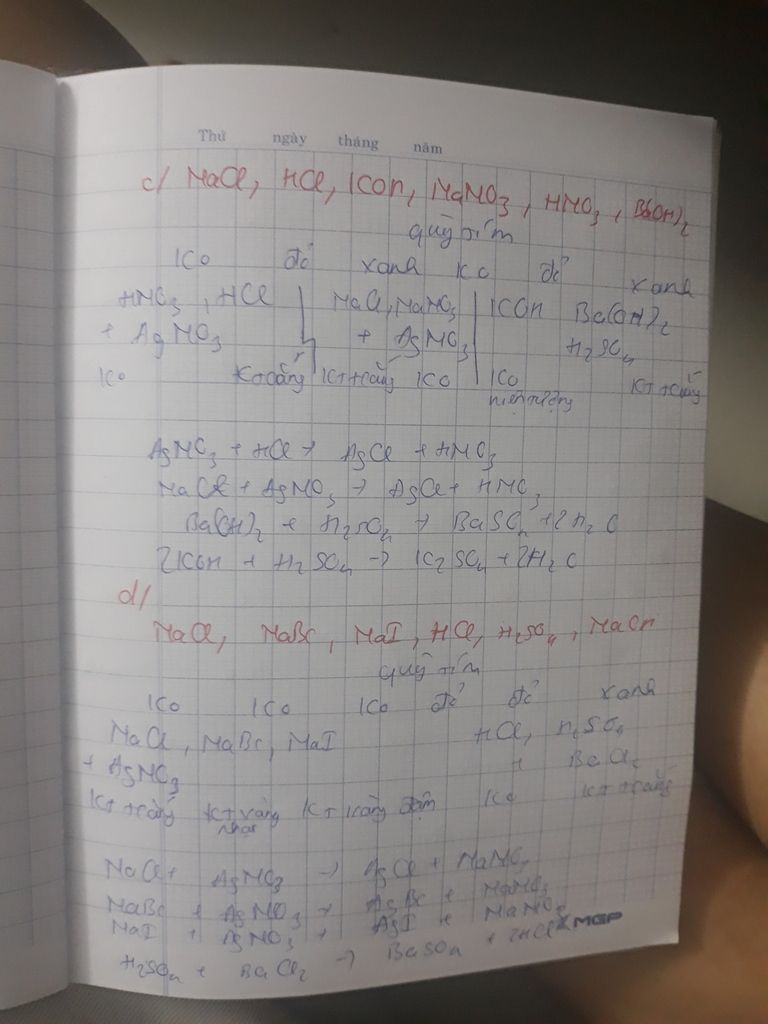 Thứ ngày tháng năm
c/ NaCl, HCl, KOH, NaNO3, HNO3, Ba(OH)2
quỳ tím
Ko đỏ xanh Ko đỏ xanh
HNO3, HCl NaCl, NaNO3 KOH Ba(OH)2
+ AgNO3 + AgNO3 H2SO4
Ko K trắng Kt trắng Ko Ko Kt trắng
hiện tượng
AgNO3 + HCl → AgCl + HNO3
NaCl + AgNO3 → AgCl + HNO3
Ba(OH)2 + H2SO4 → BaSO4 + 2H2O
2KOH + H2SO4 → K2SO4 + 2H2O
d/
NaCl, NaBr, NaI, HCl, H2SO4, NaOH
quỳ tím
Ko Ko Ko đỏ đỏ xanh
NaCl, NaBr, NaI HCl, H2SO4
+ AgNO3 + BaCl2
Kt trắng Kt vàng Kt vàng đậm Ko Kt trắng
nhạt
NaCl + AgNO3 → AgCl + NaNO3
NaBr + AgNO3 → AgBr + NaNO3
NaI + AgNO3 → AgI + NaNO3
H2SO4 + BaCl2 → BaSO4 + 2HCl
MGP